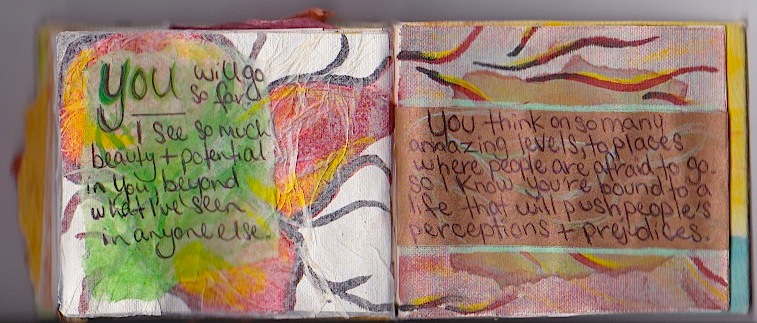 you will go
so far
I see so much
beauty + potential
in you, beyond
what I've seen
in anyone else.
You think on so many
amazing levels, to places
where people are afraid to go.
So I know you're bound to a
life that will push people's
perceptions + prejudices.